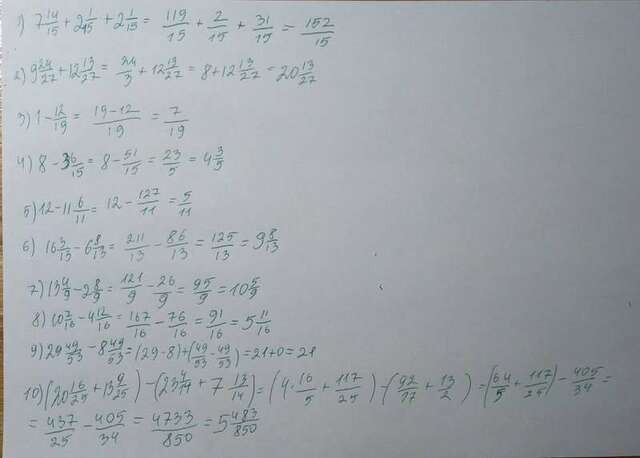 1) 7 14/15 + 2 1/15 + 2 1/15 = 119/15 + 2/15 + 31/15 = 152/15
2) 9 24/27 + 12 13/27 = 24/3 + 12 13/27 = 8 + 12 13/27 = 20 13/27
3) 1 - 12/19 = 19-12/19 = 7/19
4) 8 - 3 6/15 = 8 - 51/15 = 23/5 = 4 3/5
5) 12 - 11 6/11 = 12 - 127/11 = 5/11
6) 16 3/13 - 6 8/13 = 211/13 - 86/13 = 125/13 = 9 8/13
7) 13 4/9 - 2 8/9 = 121/9 - 26/9 = 95/9 = 10 5/9
8) 10 7/16 - 4 12/16 = 167/16 - 76/16 = 91/16 = 5 11/16
9) 29 49/53 - 8 49/53 = (29-8) + (49/53 - 49/53) = 21+0 = 21
10) (20 16/25 + 13 9/25) - (23 4/17 + 7 13/14) = (4 · 16/5 + 117/25) - (92/17 + 13/2) = (64/5 + 117/25) - 405/34 =
= 437/25 - 405/34 = 4733/850 = 5 483/850